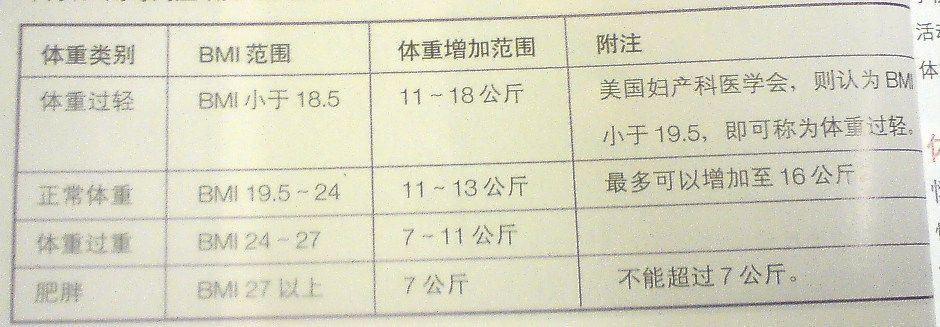 体重类别 BMI 范围 体重增加范围 附注
体重过轻 BMI 小于 18.5 11~18 公斤 美国妇产科医学会，则认为 BMI
小于 19.5，即可称为体重过轻。
正常体重 BMI 19.5~24 11~13 公斤 最多可以增加至 16 公斤。
体重过重 BMI 24~27 7~11 公斤
肥胖 BMI 27 以上 7 公斤 不能超过 7 公斤。
活动
体